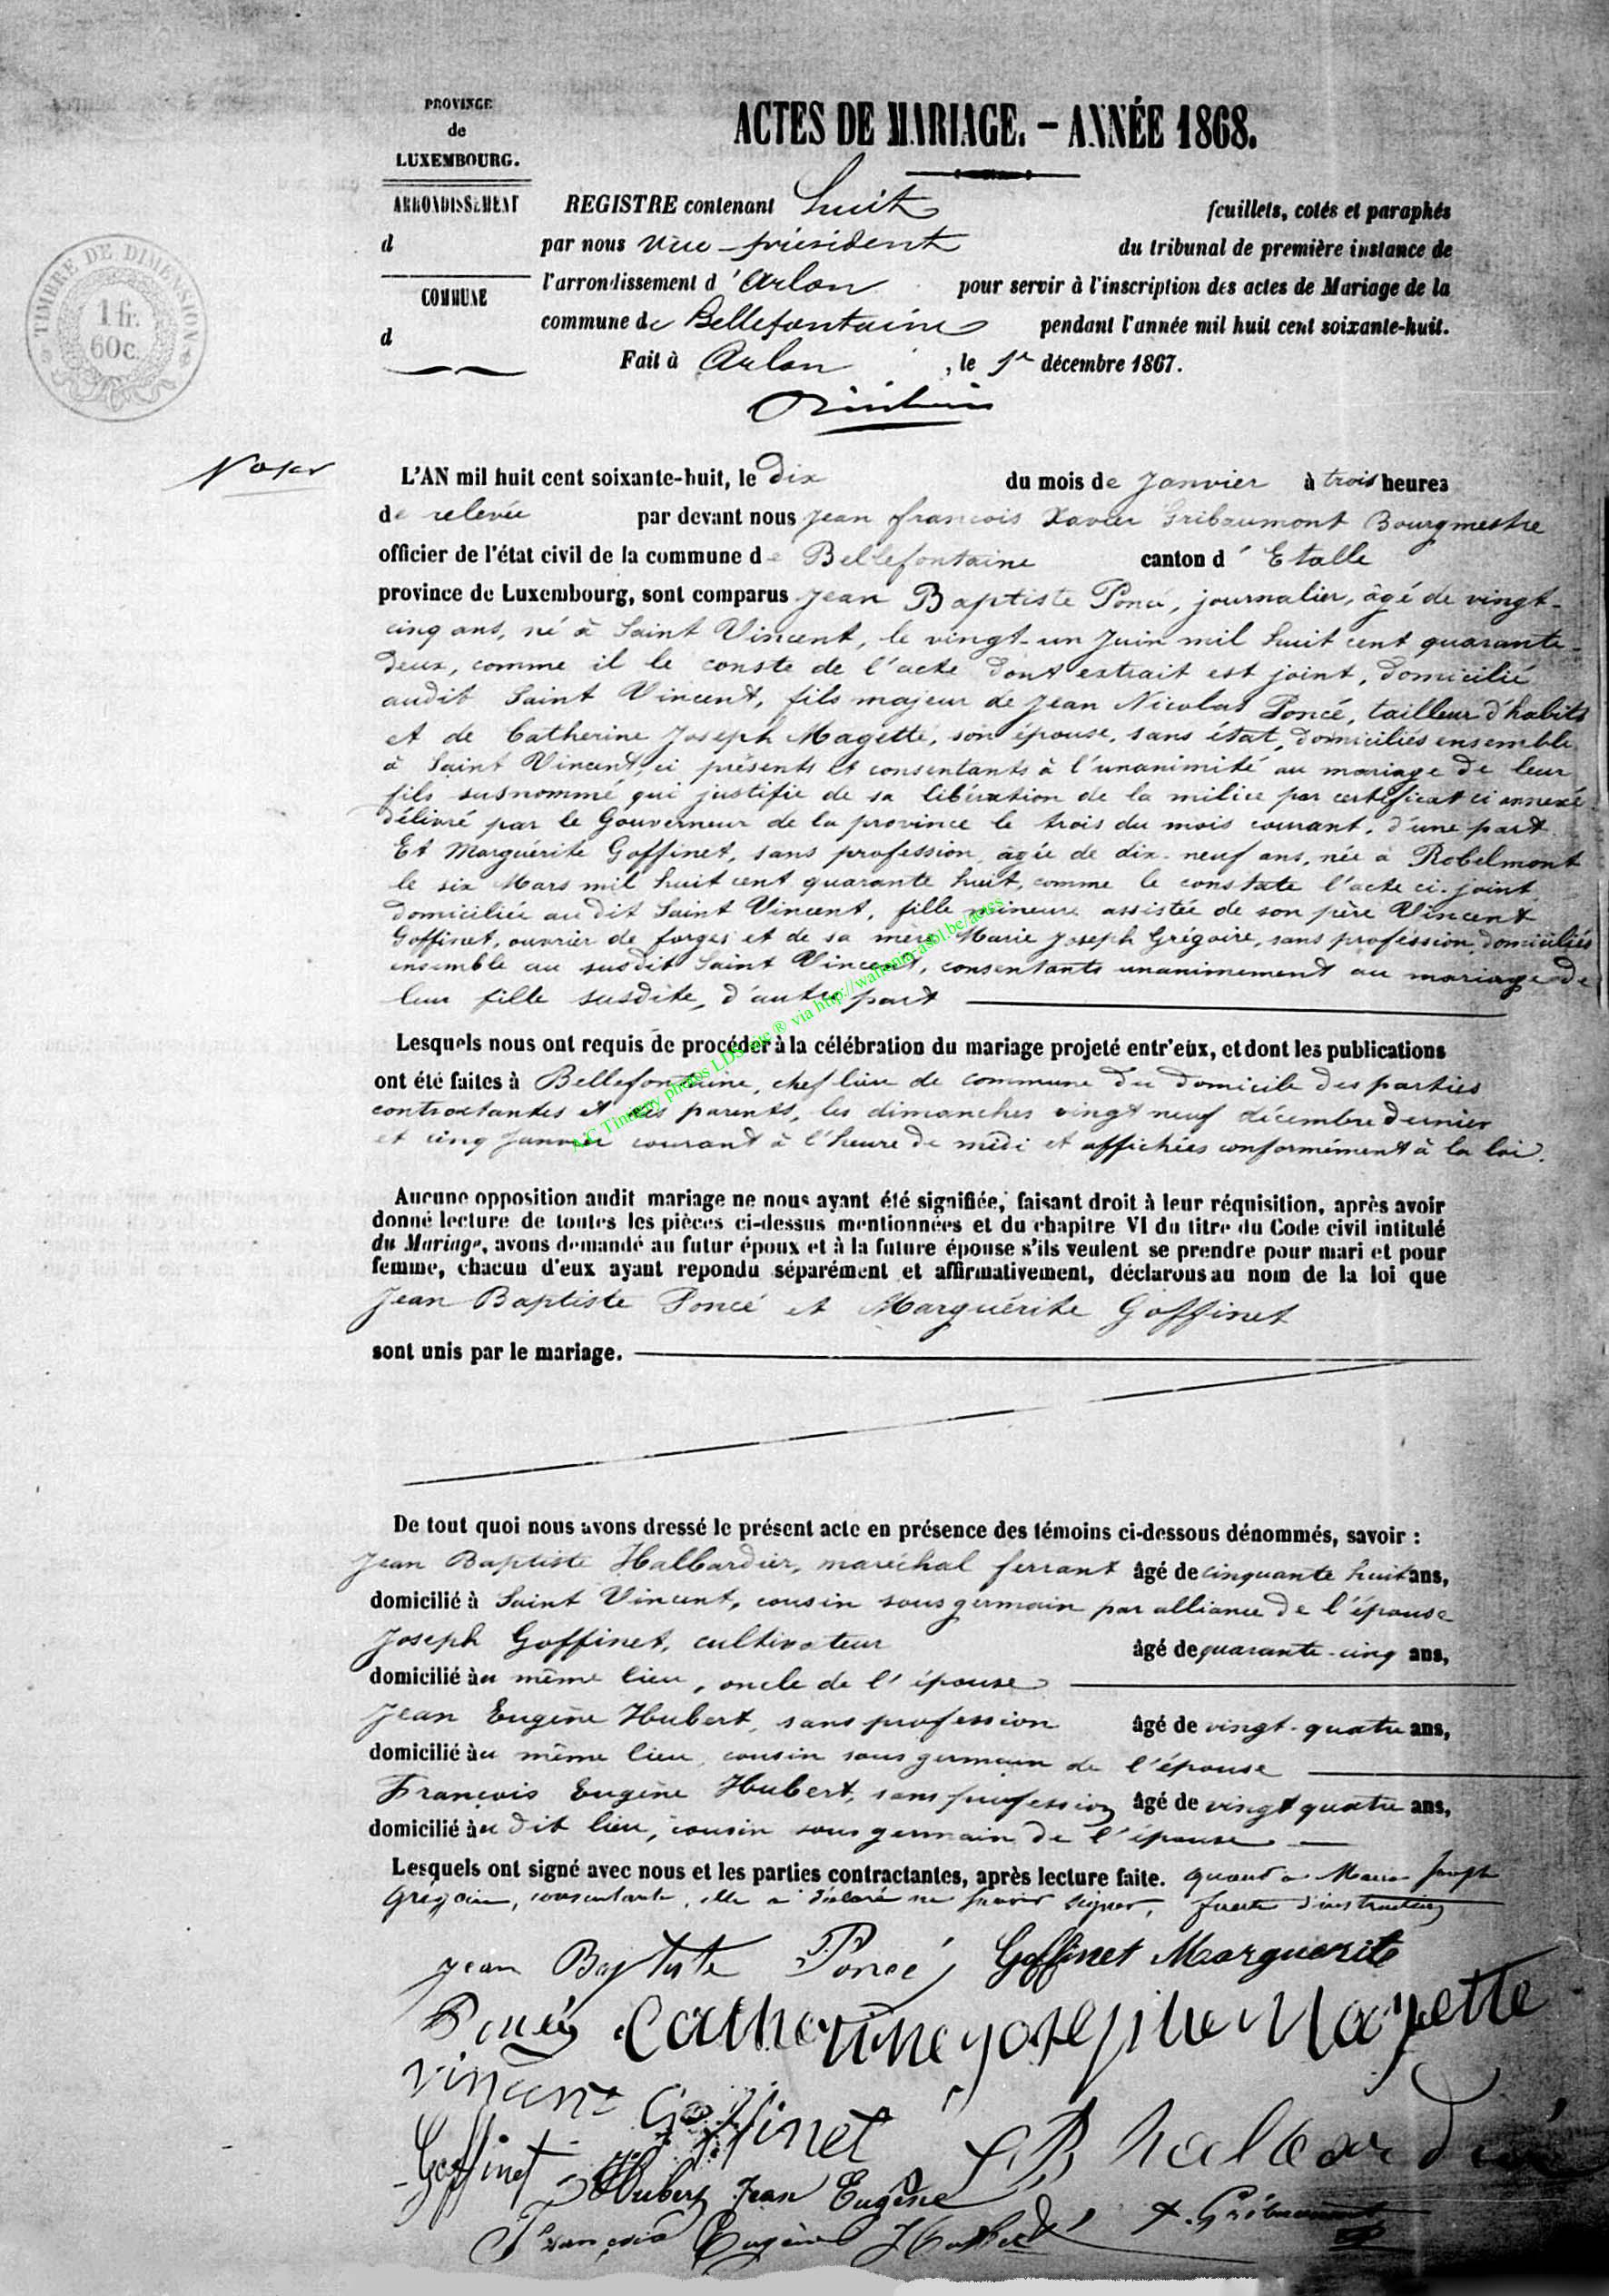 PROVINCE
de
LUXEMBOURG.
ARRONDISSEMENT
d
COMMUNE
d
TIMBRE DE DIMENSION
1 fr.
60c.
ACTES DE MARIAGE. – ANNÉE 1868.
REGISTRE contenant huit feuillets, cotés et paraphés
par nous vice-président du tribunal de première instance de
l'arrondissement d'Arlon pour servir à l'inscription des actes de Mariage de la
commune de Bellefontaine pendant l'année mil huit cent soixante-huit.
Fait à Arlon, le 1er décembre 1867.
L'AN mil huit cent soixante-huit, le dix du mois de Janvier à trois heures
de relevée par devant nous Jean françois Xavier Gribaumont Bourgmestre
officier de l'état civil de la commune de Bellefontaine canton d'Etalle
province de Luxembourg, sont comparus Jean Baptiste Poncé, journalier, âgé de vingt-
cinq ans, né à Saint Vincent, le vingt-un Juin mil huit cent quarante-
deux, comme il le conste de l'acte dont extrait est joint, domicilié
audit Saint Vincent, fils majeur de Jean Nicolas Poncé, tailleur d'habits
et de Catherine Joseph Magette, son épouse, sans état, domiciliés ensemble
à Saint Vincent, ci présents et consentants à l'unanimité au mariage de leur
fils susnommé qui justifie de sa libération de la milice par certificat ci annexé
délivré par le Gouverneur de la province le trois du mois courant, d'une part.
Et Marguérite Goffinet, sans profession, âgée de dix-neuf ans, née à Robelmont
le six Mars mil huit cent quarante huit, comme le constate l'acte ci-joint
domiciliée au dit Saint Vincent, fille mineure assistée de son père Vincent
Goffinet, ouvrier de forges et de sa mère Marie Joseph Grégoire, sans profession, domiciliés
ensemble au susdit Saint Vincent, consentants unanimement au mariage de
leur fille susdite, d'autre part
Lesquels nous ont requis de procéder à la célébration du mariage projeté entr'eux, et dont les publications
ont été faites à Bellefontaine, chef lieu de commune du domicile des parties
contractantes et des parents, les dimanches vingt neuf décembre dernier
et cinq Janvier courant à l'heure de midi et affichées conformément à la loi.
A.C Tintigny photos LDS site ® via http://wallonia-asbl.be/actes
Aucune opposition audit mariage ne nous ayant été signifiée, faisant droit à leur réquisition, après avoir
donné lecture de toutes les pièces ci-dessus mentionnées et du chapitre VI du titre du Code civil intitulé
du Mariage, avons demandé au futur époux et à la future épouse s'ils veulent se prendre pour mari et pour
femme, chacun d'eux ayant repondu séparément et affirmativement, déclarons au nom de la loi que
Jean Baptiste Poncé et Marguérite Goffinet
sont unis par le mariage.
De tout quoi nous avons dressé le présent acte en présence des témoins ci-dessous dénommés, savoir :
Jean Baptiste Halbardier, maréchal ferrant âgé de cinquante huit ans,
domicilié à Saint Vincent, cousin sous germain par alliance de l'épouse
Joseph Goffinet, cultivateur âgé de quarante-cinq ans,
domicilié au même lieu, oncle de l'épouse
Jean Eugène Hubert, sans profession âgé de vingt-quatre ans,
domicilié au même lieu, cousin sous germain de l'épouse
François Eugène Hubert, sans profession âgé de vingt quatre ans,
domicilié au dit lieu, cousin sous germain de l'épouse
Lesquels ont signé avec nous et les parties contractantes, après lecture faite. quant à Marie Joseph
Grégoire, consentante, elle a déclaré ne savoir signer, faute d'instruction
Jean Baptiste Poncé Goffinet Marguerite
Poncé Catherine josephe Magette
vincent Goffinet
Goffinet JB halbardié
Hubert Jean Eugène
François Eugène Hubert X. Gribaumont